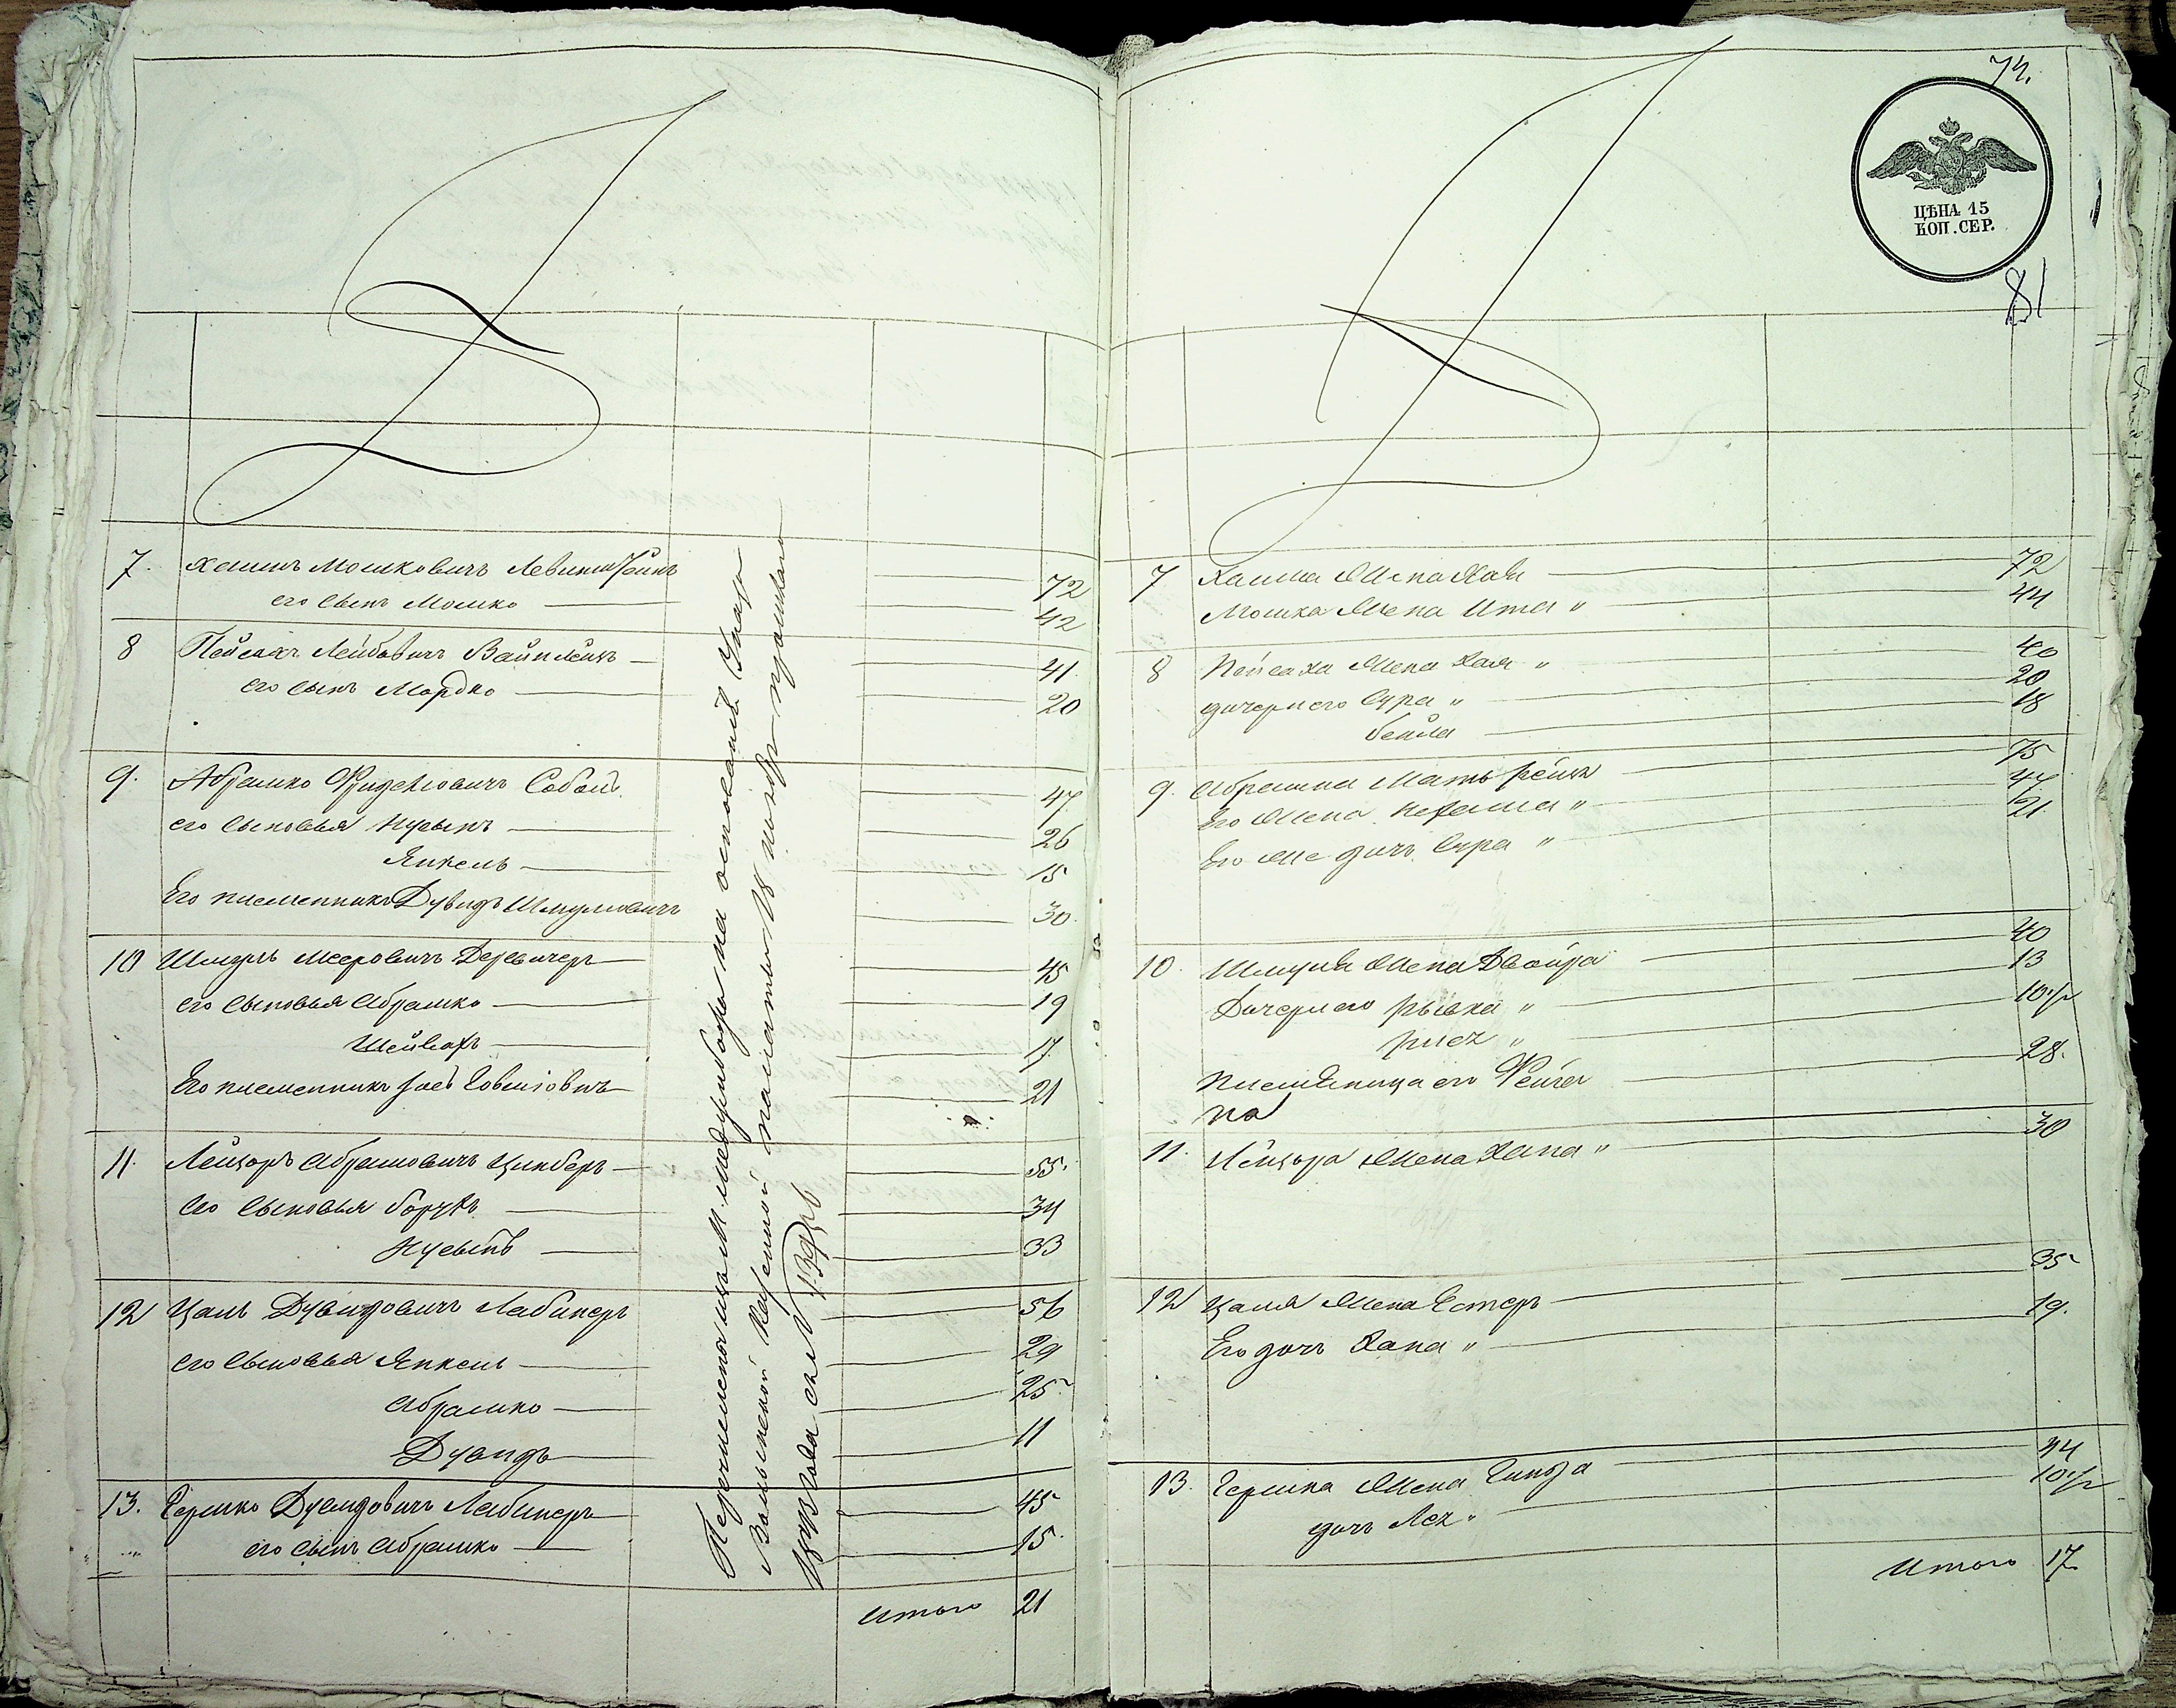 7. Хаимъ Мошковичъ Левинштейнъ 72
его сынъ Мошко 42
8 Пейсахъ Лейбовичъ Вайнлейнъ 41
его сынъ Мордко 20
9. Абрамко Фридлiовичъ 47
его сыновья Нусынъ 26
Янкель 15
Его племенникъ Дувидъ Шмулiовичъ 30.
10 Шмуль Мееровичъ 45
его сыновья Абрамко 19
17
Его племенникъ 21
11. Лейзоръ Абрамовичъ Цинберъ 55.
его сыновья Борухъ 34
Нусынъ 33
12 Цаль Дувидовичъ Лабинеръ 56
его сыновья Янкель 29
Абрамко 25
Дувидъ 11
13. Гершко Дувидовичъ Лабинеръ 45
его сынъ Абрамко 15.
итого 21
Перечислены изъ Меджибожа на основанiи Указа
Волынской Казенной палаты 18 ноября прошлаго
74.
ЦѢНА 15
КОП. СЕР.
81
7 Хаима жена Хая 72
Мошка жена Ита " 44
8 Пейсаха жена Хая " 40
дочери его Сура " 20
Бейла 18
9. Абрамка мать Рейзя 75
Его жена Нехама " 44
Его же дочь Сура " 21
10. Шмуля жена Двойра 40
Дочери его Рывка " 13
" 10 1/2
племянница его Фейга 28.
11. Лейзора жена Хана " 30
12 Цаля жена Естеръ 35
Его дочь Хана " 19.
13. Гершка жена 44
дочь Лея " 10 1/2
Итого 17